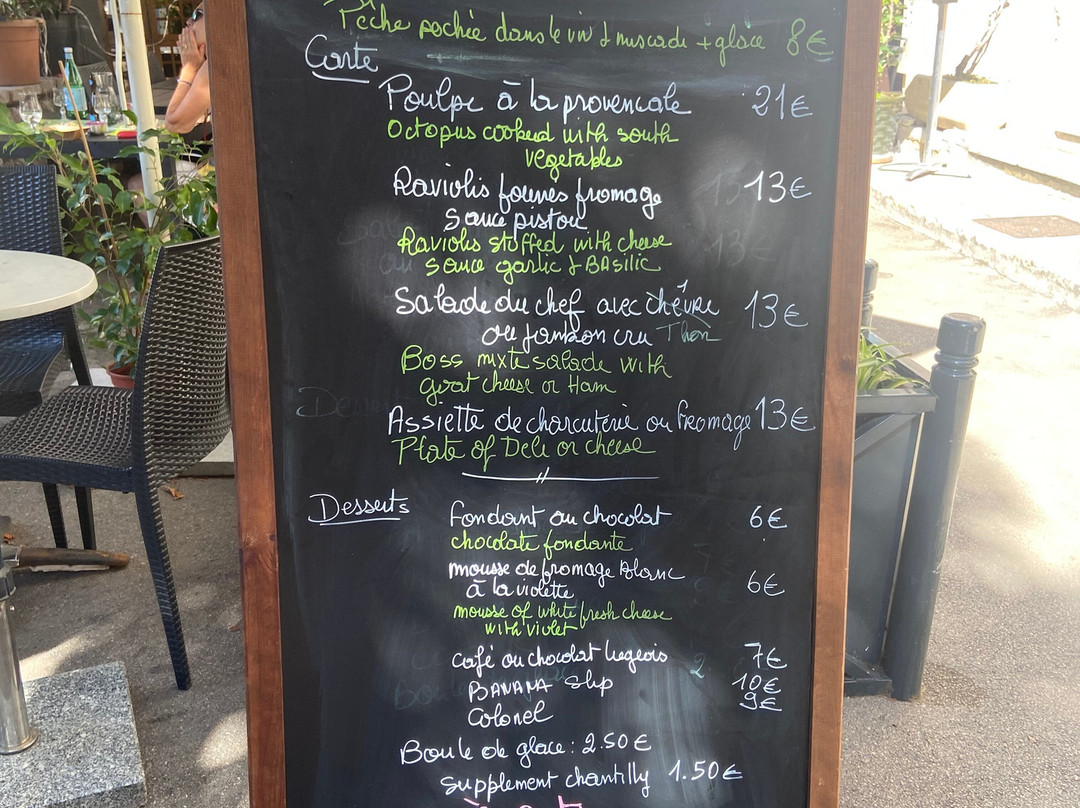 Pêche pochée dans le vin & muscade + glace 8€
Carte
Poulpe à la provencale 21€
Octopus cooked with south
vegetables
Raviolis fourres fromage 13€
Sauce pistou
Raviolis stuffed with cheese
sauce garlic & BASilic
Salade du chef avec chêvre 13€
ou jambon cru Thon
Boss mixte salade with
goat cheese or Ham
Assiette de charcuterie ou fromage 13€
Plate of Deli or cheese
Desserts
fondant au chocolat 6€
chocolate fondante
mousse de fromage Blanc 6€
à la violette
mousse of white fresh cheese
with violet
café ou chocolat liegeois 7€
BANANA Slip 10€
Colonel 9€
Boule de glace : 2.50€
Supplement chantilly 1.50€